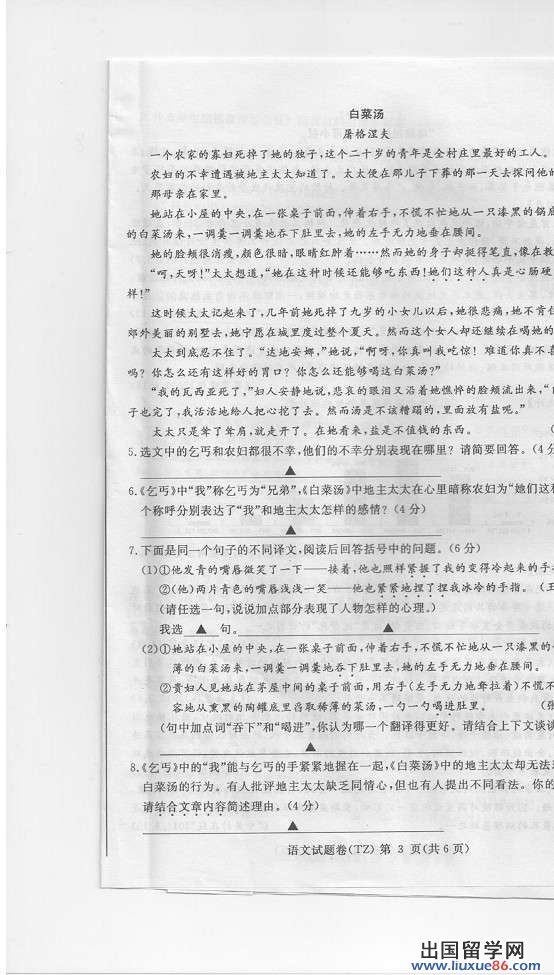 白菜汤
屠格涅夫
一个农家的寡妇死掉了她的独子,这个二十岁的青年是全村庄里最好的工人。
农妇的不幸遭遇被地主太太知道了。太太便在那儿子下葬的那一天去探问他的
那母亲在家里。
她站在小屋的中央,在一张桌子前面,伸着右手,不慌不忙地从一只漆黑的锅底
的白菜汤来,一调羹一调羹地吞下肚里去,她的左手无力地垂在腰间。
她的脸颊很消瘦,颜色很暗,眼睛红肿着……然而她的身子却挺得笔直,像在教
“呵,天呀!”太太想道,“她在这种时候还能够吃东西!她们这种人真是心肠硬
样!”
这时候太太记起来了,几年前她死掉了九岁的小女儿以后,她很悲痛,她不肯住
郊外美丽的别墅去,她宁愿在城里度过整个夏天。然而这个女人却还继续在喝她的
太太到底忍不住了。“达地安娜,”她说,“啊呀,你真叫我吃惊!难道你真不喜
吗?你怎么还有这样好的胃口?你怎么还能够喝这白菜汤?”
“我的瓦西亚死了,”妇人安静地说,悲哀的眼泪又沿着她憔悴的脸颊流出来,“
子也完了,我活活地给人把心挖了去。然而汤是不该糟蹋的,里面放有盐呢。”
太太只是耸了耸肩,就走开了。在她看来,盐是不值钱的东西。(
5.选文中的乞丐和农妇都很不幸,他们的不幸分别表现在哪里?请简要回答。(4分
▲
6.《乞丐》中“我”称乞丐为“兄弟”,《白菜汤》中地主太太在心里暗称农妇为“她们这种
个称呼分别表达了“我”和地主太太怎样的感情?(4分)
▲
7.下面是同一个句子的不同译文,阅读后回答括号中的问题。(6分)
(1)①他发青的嘴唇微笑了一下——接着,他也照样紧握了我的变得冷起来的手
②(他)两片青色的嘴唇浅浅一笑——他也紧紧地捏了捏我冰冷的手指。(王
(请任选一句,说说加点部分表现了人物怎样的心理。)
我选 ▲ 句。 ▲
(2)①她站在小屋的中央,在一张桌子前面,伸着右手,不慌不忙地从一只漆黑的
薄的白菜汤来,一调羹一调羹地吞下肚里去,她的左手无力地垂在腰间。
②贵妇人见她站在茅屋中间的桌子前面,用右手(左手无力地耷拉着)不慌不
容地从熏黑的陶罐底里舀取稀薄的菜汤,一勺一勺喝进肚里。(张
(句中加点词“吞下”和“喝进”,你认为哪一个翻译得更好。请结合上下文谈谈
▲
8.《乞丐》中的“我”能与乞丐的手紧紧地握在一起,《白菜汤》中的地主太太却无法
白菜汤的行为。有人批评地主太太缺乏同情心,但也有人提出不同看法。你的
请结合文章内容简述理由。(4分)
▲
语文试题卷(TZ) 第 3 页(共6页)
出国留学网
www.liuxue86.com